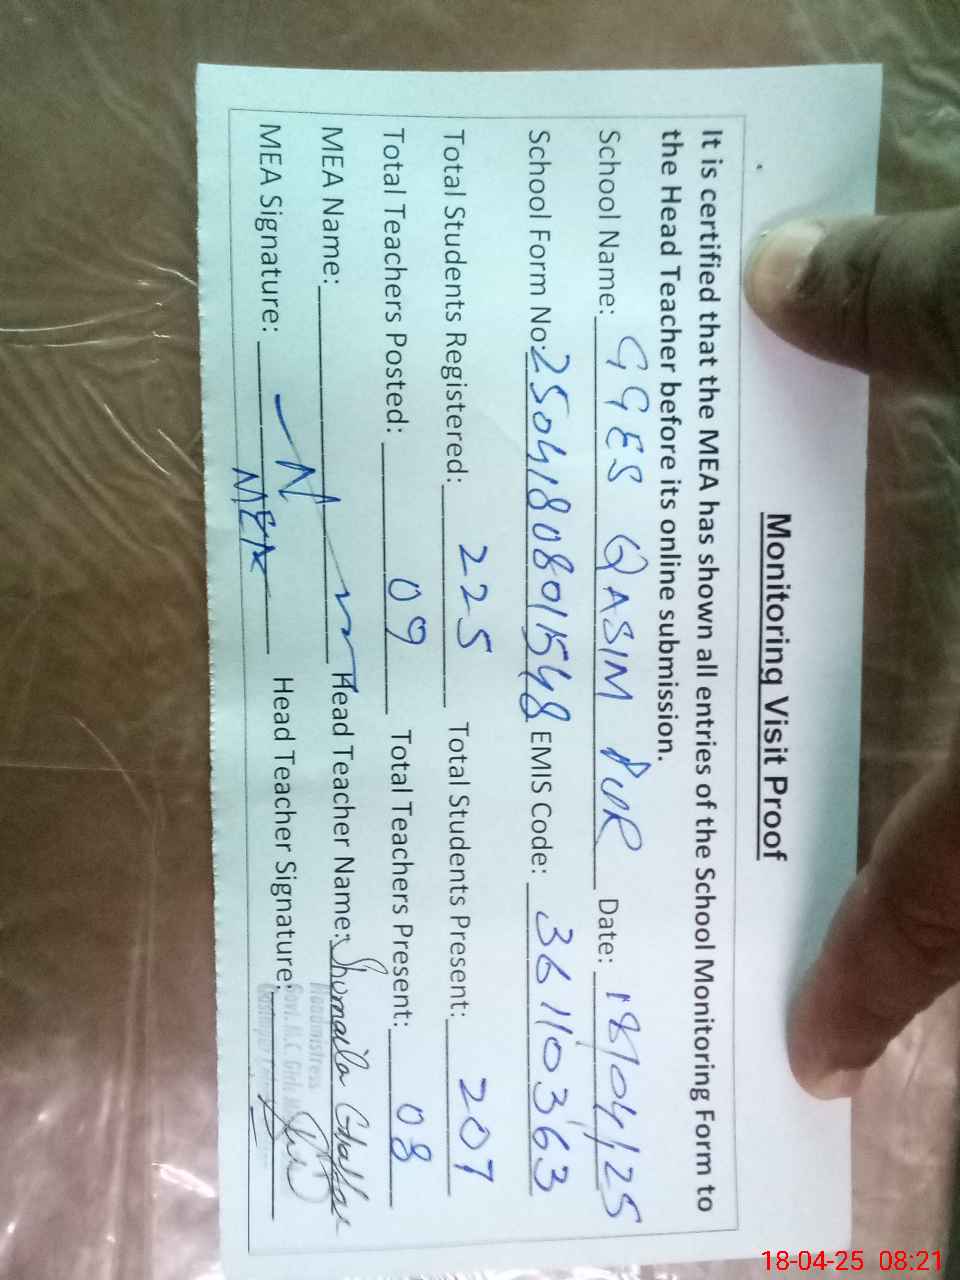 Monitoring Visit Proof
It is certified that the MEA has shown all entries of the School Monitoring Form to
the Head Teacher before its online submission.
School Name: GGES QASIM PUR Date: 18/04/25
School Form No: 2504180801548 EMIS Code: 36110363
Total Students Registered: 225 Total Students Present: 207
Total Teachers Posted: 09 Total Teachers Present: 08
MEA Name: Head Teacher Name: Shumaila Ghaffar
MEA Signature: Head Teacher Signature:
MEA
Headmistress
Govt. M.C. Girls
18-04-25 08:21